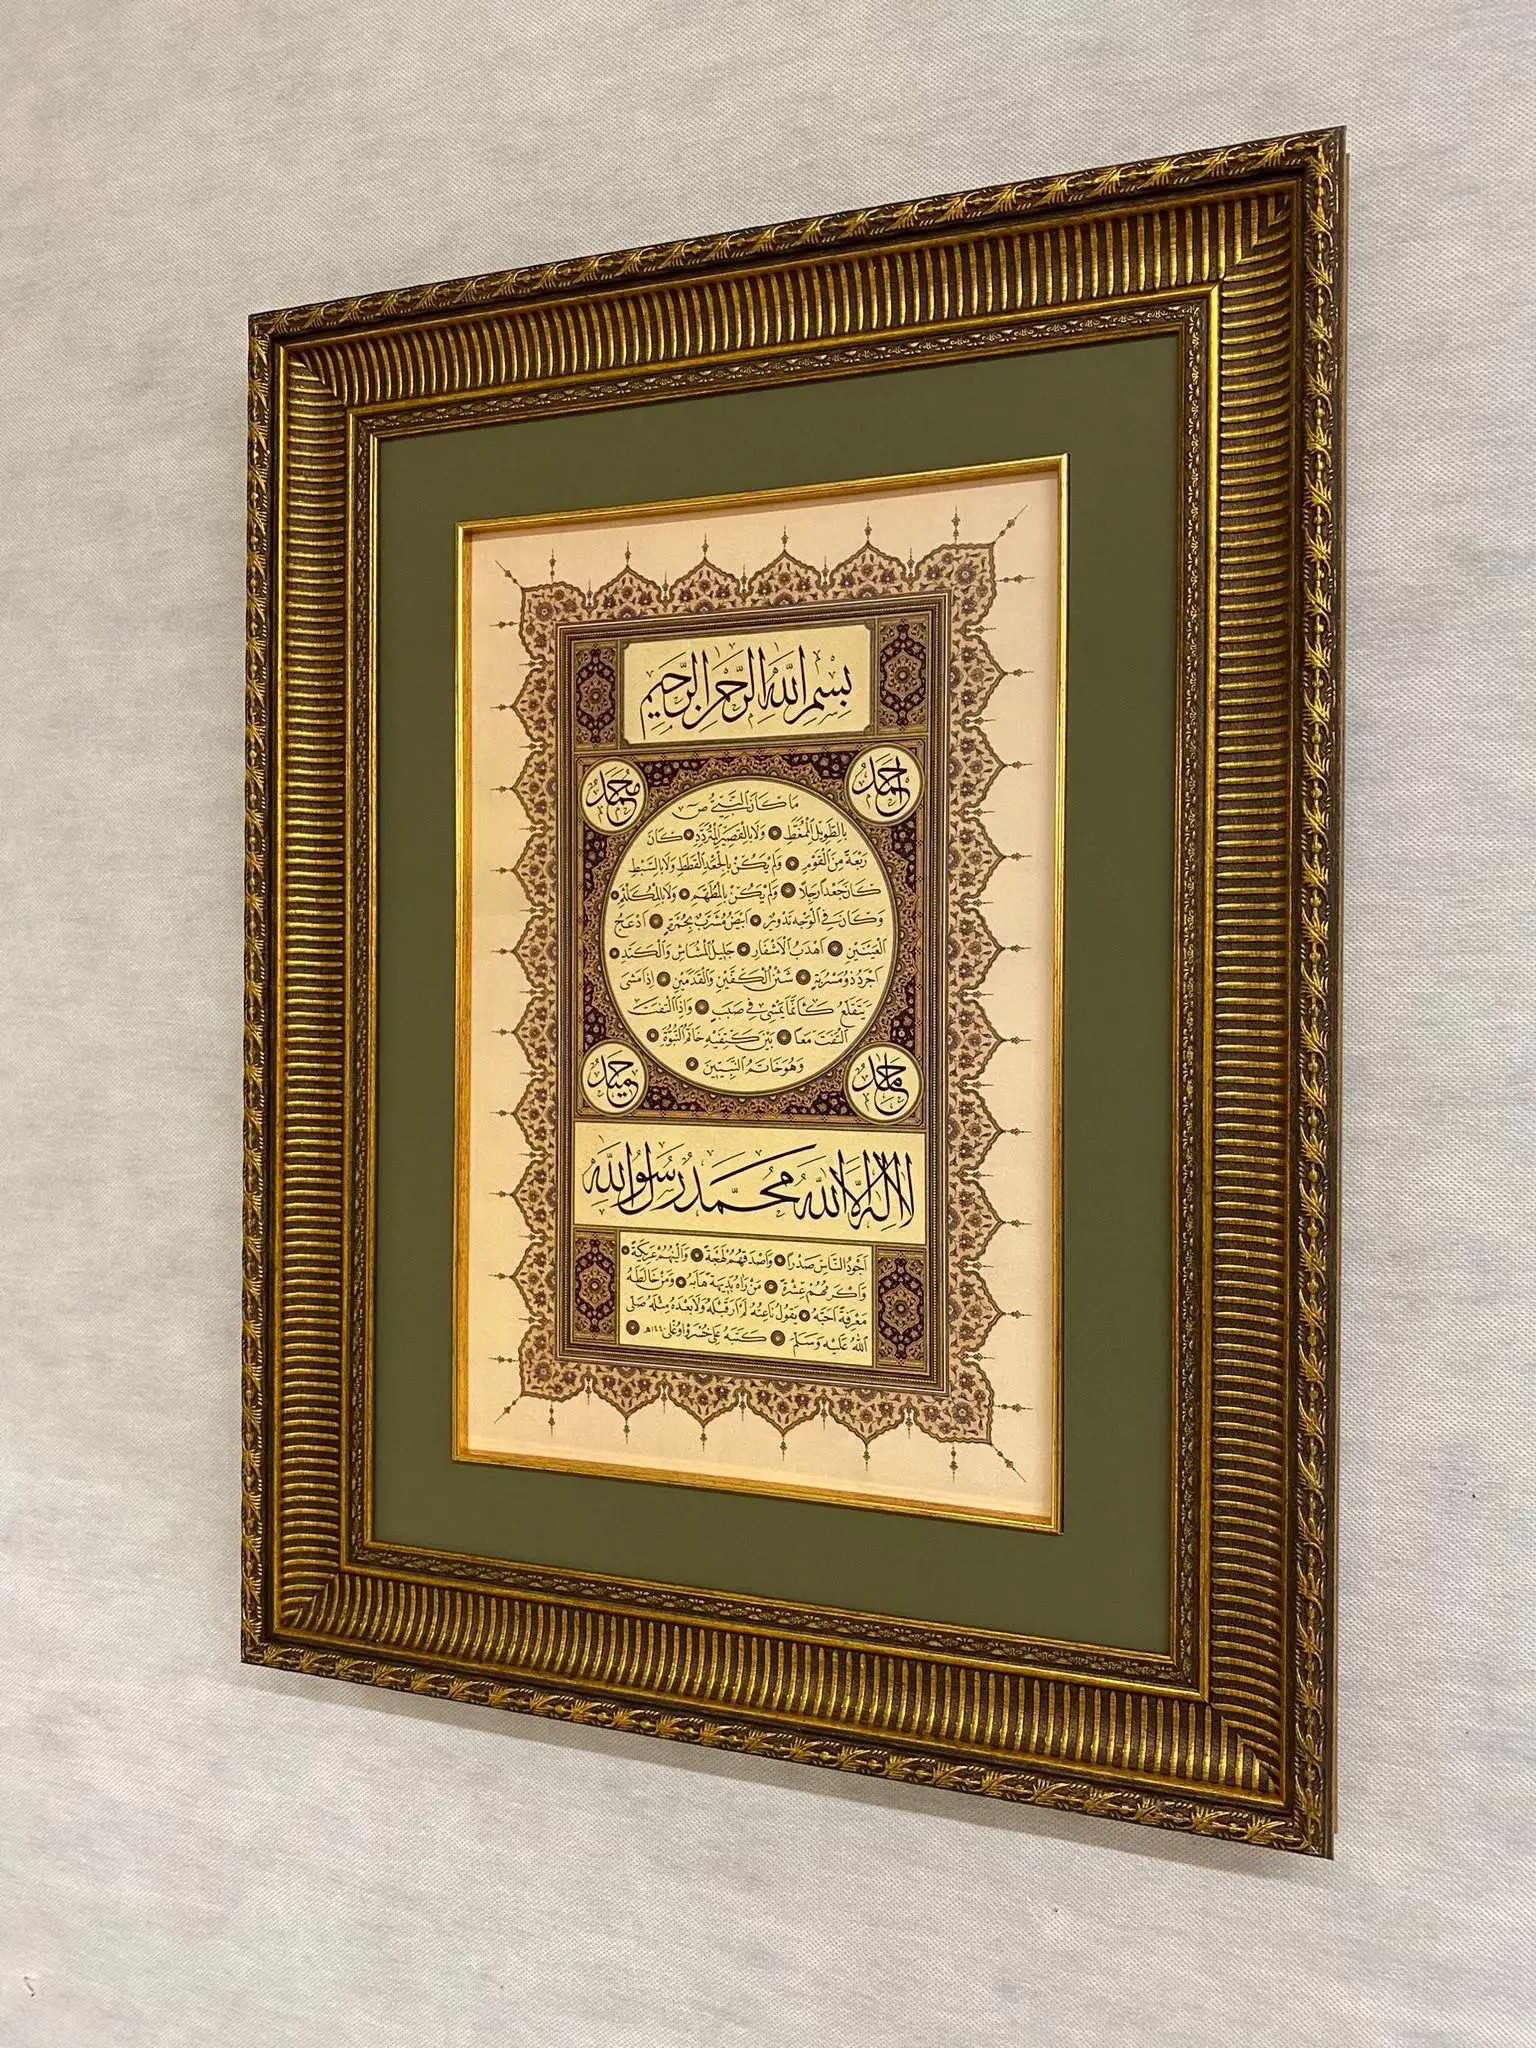 بِسْمِ اللّٰهِ الرَّحْمٰنِ الرَّحِيمِ
اَحْمَدُ
مُحَمَّدُ
مَا كَانَ النَّبِيُّ ص
بِالطَّوِيلِ الْمُمَّغِطِ وَلَا بِالْقَصِيرِ الْمُتَرَدِّدِ كَانَ
رَبْعَةً مِنَ الْقَوْمِ وَلَمْ يَكُنْ بِالْجَعْدِ الْقَطَطِ وَلَا بِالسَّبْطِ
كَانَ جَعْدًا رَجِلًا وَلَمْ يَكُنْ بِالْمُطَهَّمِ وَلَا بِالْمُكَلْثَمِ
وَكَانَ فِي الْوَجْهِ تَدْوِيرٌ اَبْيَضُ مُشْرَبٌ بِحُمْرَةٍ اَدْعَجُ
الْعَيْنَيْنِ اَهْدَبُ الْاَشْفَارِ جَلِيلُ الْمُشَاشِ وَالْكَتَدِ
اَجْرَدُ ذُو مَسْرُبَةٍ شَثْنُ الْكَفَّيْنِ وَالْقَدَمَيْنِ اِذَا مَشَى
يَتَقَلَّعُ كَاَنَّمَا يَمْشِي فِي صَبَبٍ وَاِذَا الْتَفَتَ
الْتَفَتَ مَعًا بَيْنَ كَتِفَيْهِ خَاتَمُ النُّبُوَّةِ
وَهُوَ خَاتَمُ النَّبِيِّينَ
حَامِدُ
حَمِيدُ
لَا اِلٰهَ اِلَّا اللّٰهُ مُحَمَّدٌ رَسُولُ اللّٰهِ
اَجْوَدُ النَّاسِ صَدْرًا وَاَصْدَقُهُمْ لَهْجَةً وَاَلْيَنُهُمْ عَرِيكَةً
وَاَكْرَمُهُمْ عِشْرَةً مَنْ رَآهُ بَدِيهَةً هَابَهُ وَمَنْ خَالَطَهُ
مَعْرِفَةً اَحَبَّهُ يَقُولُ نَاعِتُهُ لَمْ اَرَ قَبْلَهُ وَلَا بَعْدَهُ مِثْلَهُ صَلَّى
اللّٰهُ عَلَيْهِ وَسَلَّمَ كَتَبَهُ عَلِي خُسْرَوْ اوُغْلِى ١٤٤٠هـ